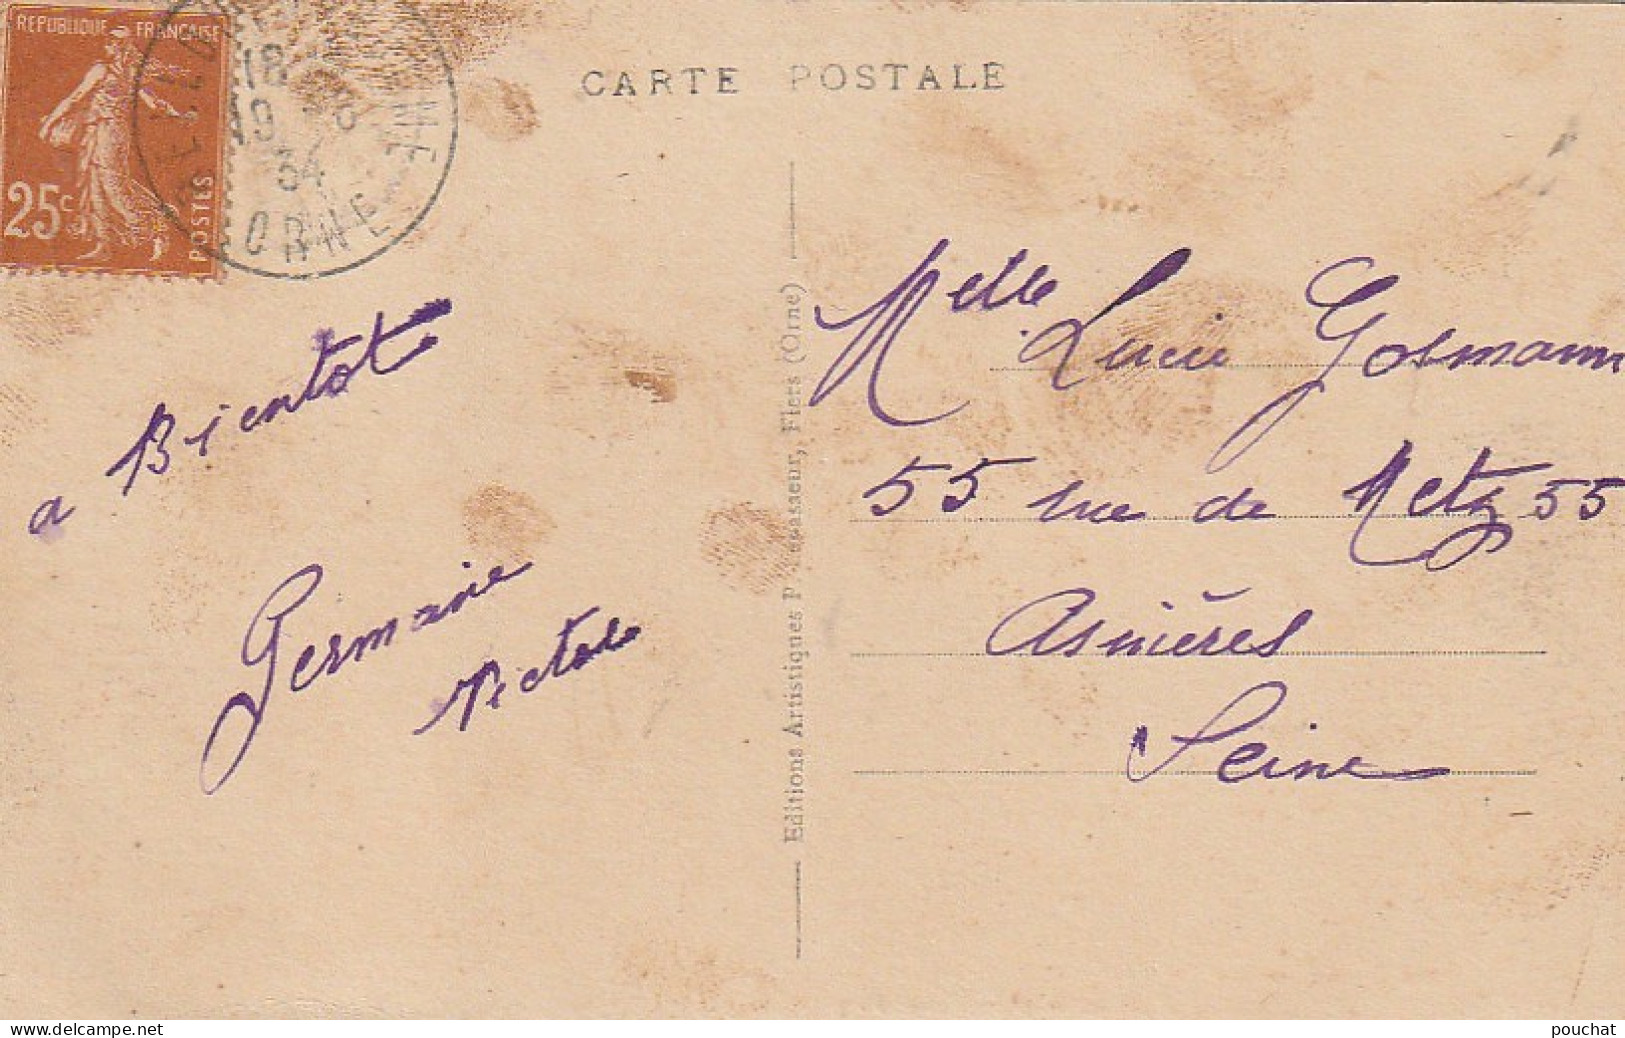 REPUBLIQUE FRANÇAISE
25c
POSTES
18
19 8
34
ORNE
CARTE POSTALE
a Bientot
Germaine
Melle Lucie Gosmann
55 rue de Metz 55
Asnières
Seine
Editions Artistiques P Levasseur, Flers (Orne)
delcampe.net
pouchat